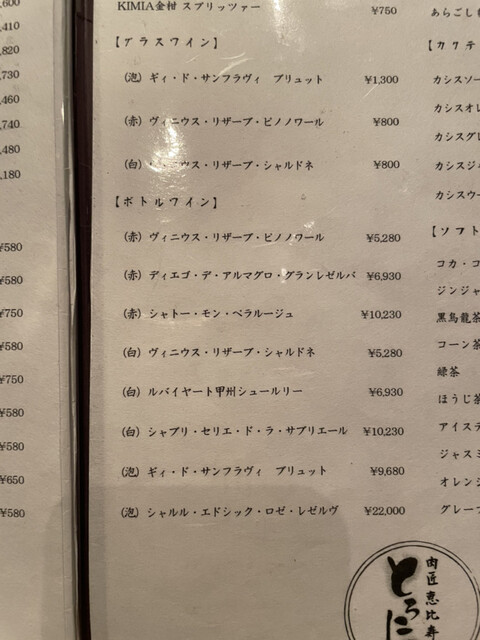 ,600
,410
,820
,730
,460
,740
,480
,180
¥580
¥580
¥750
¥580
¥750
¥580
¥580
¥650
¥580
KIMIA金柑 スプリッツァー ¥750
【グラスワイン】
(泡) ギィ・ド・サンフラヴィ ブリュット ¥1,300
(赤) ヴィニウス・リザーブ・ピノノワール ¥800
(白) ヴィニウス・リザーブ・シャルドネ ¥800
【ボトルワイン】
(赤) ヴィニウス・リザーブ・ピノノワール ¥5,280
(赤) ディエゴ・デ・アルマグロ・グランレゼルバ ¥6,930
(赤) シャトー・モン・ペラルージュ ¥10,230
(白) ヴィニウス・リザーブ・シャルドネ ¥5,280
(白) ルバイヤート甲州シュールリー ¥6,930
(白) シャブリ・セリエ・ド・ラ・サブリエール ¥10,230
(泡) ギィ・ド・サンフラヴィ ブリュット ¥9,680
(泡) シャルル・エドシック・ロゼ・レゼルヴ ¥22,000
あらごし
【カクテ
カシスソー
カシスオレ
カシスグレ
カシスジ
カシスウー
【ソフト
コカ・コ
ジンジャ
黒烏龍茶
コーン茶
緑茶
ほうじ茶
アイステ
ジャスミ
オレン
グレー
肉匠恵比寿
とろに